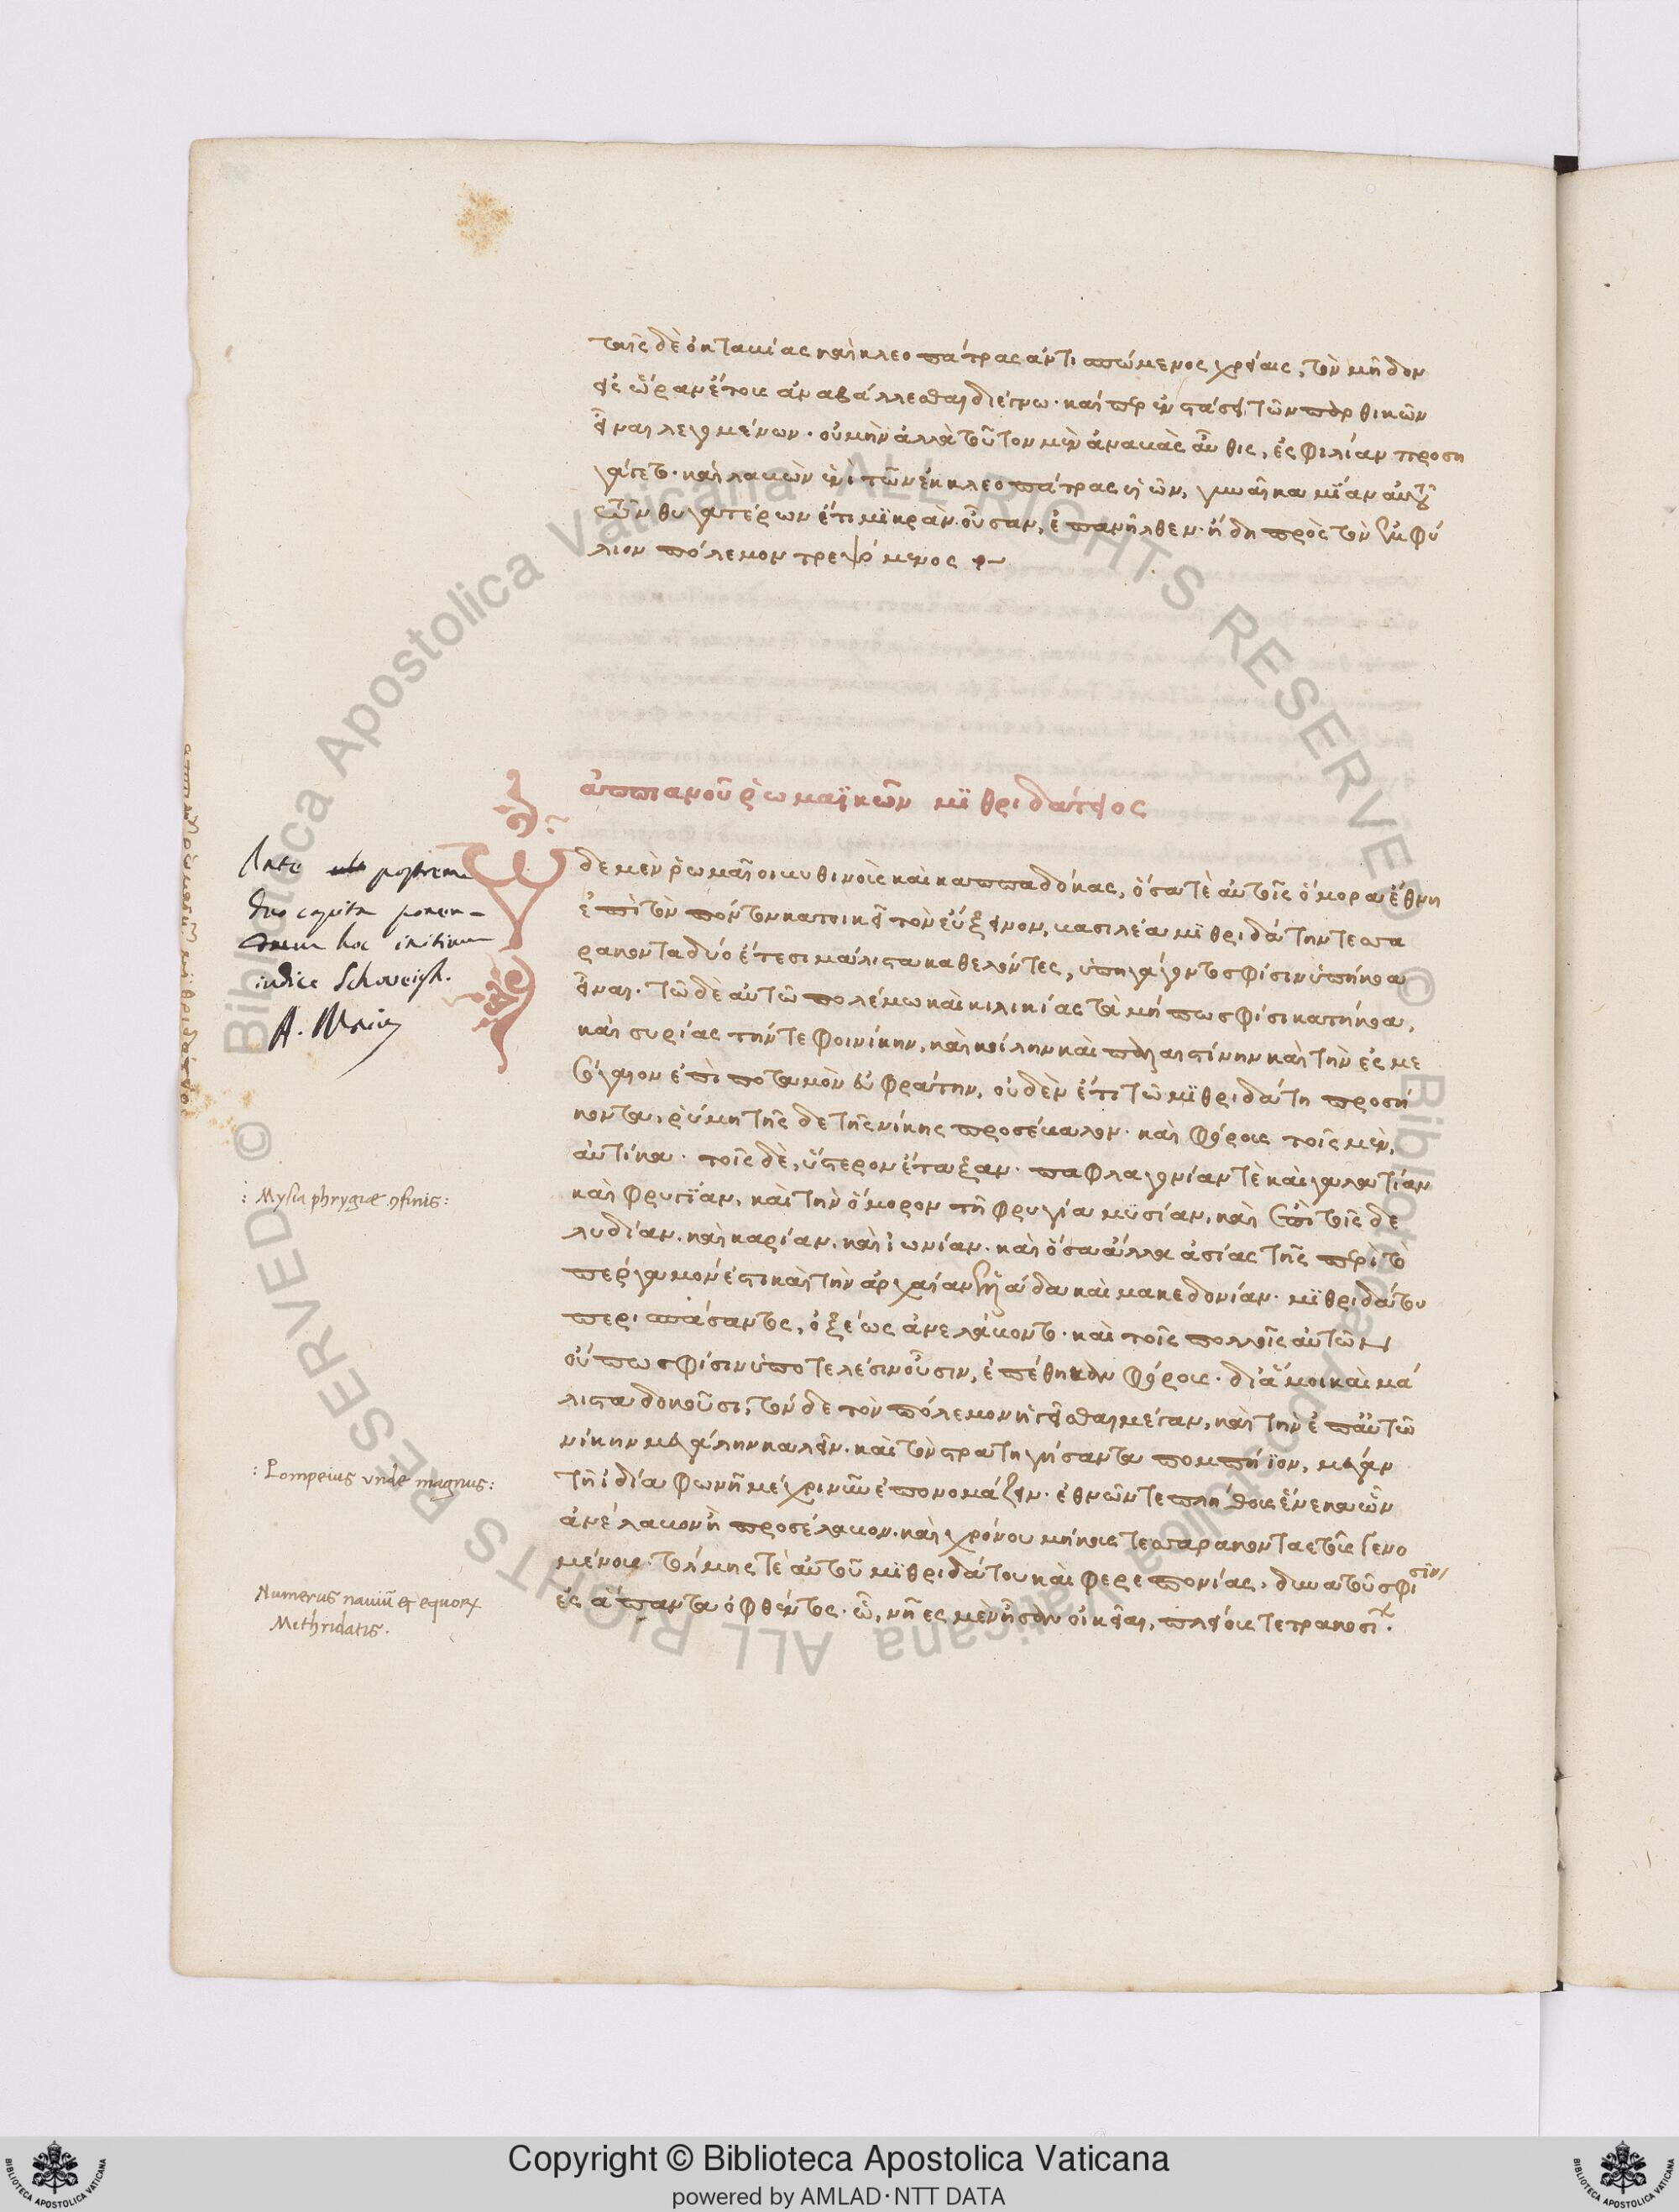 ταῖς δὲ ὀκταβίας καὶ κλεοπάτρας ἀντισπώμενος χρείαις, τὸν μῆδον
εἰς ὥραν ἔτους ἀναβάλλεσθαι διέγνω. καίπερ ἐν στάσει τῶν παρθικῶν
εἶναι λεγομένων. οὐ μὴν ἀλλὰ τοῦτον μὲν ἀναβὰς αὖθις, ἐς φιλίαν προση
γάγετο. καὶ λαβὼν ἑνὶ τῶν ἐκ κλεοπάτρας υἱῶν, γυναῖκα μίαν αὐτοῦ
τῶν θυγατέρων ἔτι μϊκρὰν οὖσαν, ἐπανῆλθεν. ἤδη πρὸς τὸν ἐμφύ
λιον πόλεμον τρεψόμενος
ἀππιανοῦ ῥωμαϊκῶν μϊθριδάτειος
Ὧδε μὲν ῥωμαῖοι βιθυνοὺς καὶ καππαδόκας, ὅσα τὲ αὐτοῖς ὅμορα ἔθνη
ἐπὶ τὸν πόντον κατοικεῖ τὸν εὔξεινον, βασιλέα μϊθριδάτην τεσσα
ράκοντα δύο ἔτεσι μάλιστα καθελόντες, ὑπηγάγοντο σφίσιν ὑπήκοα
εἶναι. τῶ δὲ αὐτῶ πολέμω καὶ κιλικίας τὰ μή πω σφίσι κατήκοα,
καὶ συρίας τήν τε φοινίκην, καὶ κοίλην καὶ παλαιστίνην καὶ τὴν ἐς με
σόγαιον ἐπὶ ποταμὸν εὐφράτην, οὐδὲν ἔτι τῶ μϊθριδάτη προσή
κοντα, ῥύμη τῆς δε τῆς νίκης προσέλαβον. καὶ φόρους τοῖς μὲν,
αὐτίκα. τοῖς δὲ, ὕστερον ἔταξαν. παφλαγονίαν τὲ καὶ γαλατίαν
καὶ φρυγίαν, καὶ τὴν ὅμορον τῆ φρυγία μϋσίαν, καὶ ἐπὶ τοῖς δε
λυδίαν. καὶ καρίαν. καὶ ἰωνίαν. καὶ ὅσα ἄλλα ἀσίας τῆς περὶ τὸ
πέργαμον ἐστὶ καὶ τὴν ἀρχαίαν ἑλλάδα καὶ μακεδονίαν. μϊθριδάτου
περισπάσαντος, ὀξέως ἀνέλαβον. καὶ τοῖς πολλοῖς αὐτῶν
οὔπω σφίσιν ὑποτελέσιν οὖσιν, ἐπέθηκαν φόρους. δι' ἅ μοι καὶ μά
λιστα δοκοῦσι, τόνδε τὸν πόλεμον ἡγεῖσθαι μέγαν, καὶ τὴν ἐπ' αὐτῶ
νίκην μεγάλην καλεῖν. καὶ τὸν στρατηγήσαντα πομπήϊον, μέγαν
τῆ ἰδία φωνῆ μέχρι νῦν ἐπονομάζειν. ἐθνῶν τε πλήθους ἕνεκα ὧν
ἀνέλαβον ἢ προσέλαβον. καὶ χρόνου μήκους τεσσαράκοντα ἔτους γενο
μένου. τόλμης τὲ αὐτοῦ μϊθριδάτου καὶ φερεπονίας. δυνατοῦ σφίσιν
ἐς ἅπαντα ὀφθέντος. ὧ, νῆες μὲν ἦσαν οἰκεῖαι, πλείους τετρακοσίων.
Ante postrema
duo capita ponen-
dum hoc initium
indice Schweigh.
A. Maius
: Mysia phrygiæ 9finis:
: Pompeius unde magnus:
Numerus naviũ et equorꝝ
Mithridatis.
Copyright © Biblioteca Apostolica Vaticana
powered by AMLAD·NTT DATA
© Biblioteca Apostolica Vaticana ALL RIGHTS RESERVED
© Biblioteca Apostolica Vaticana ALL RIGHTS RESERVED
BIBLIOTECA APOSTOLICA VATICANA
BIBLIOTECA APOSTOLICA VATICANA